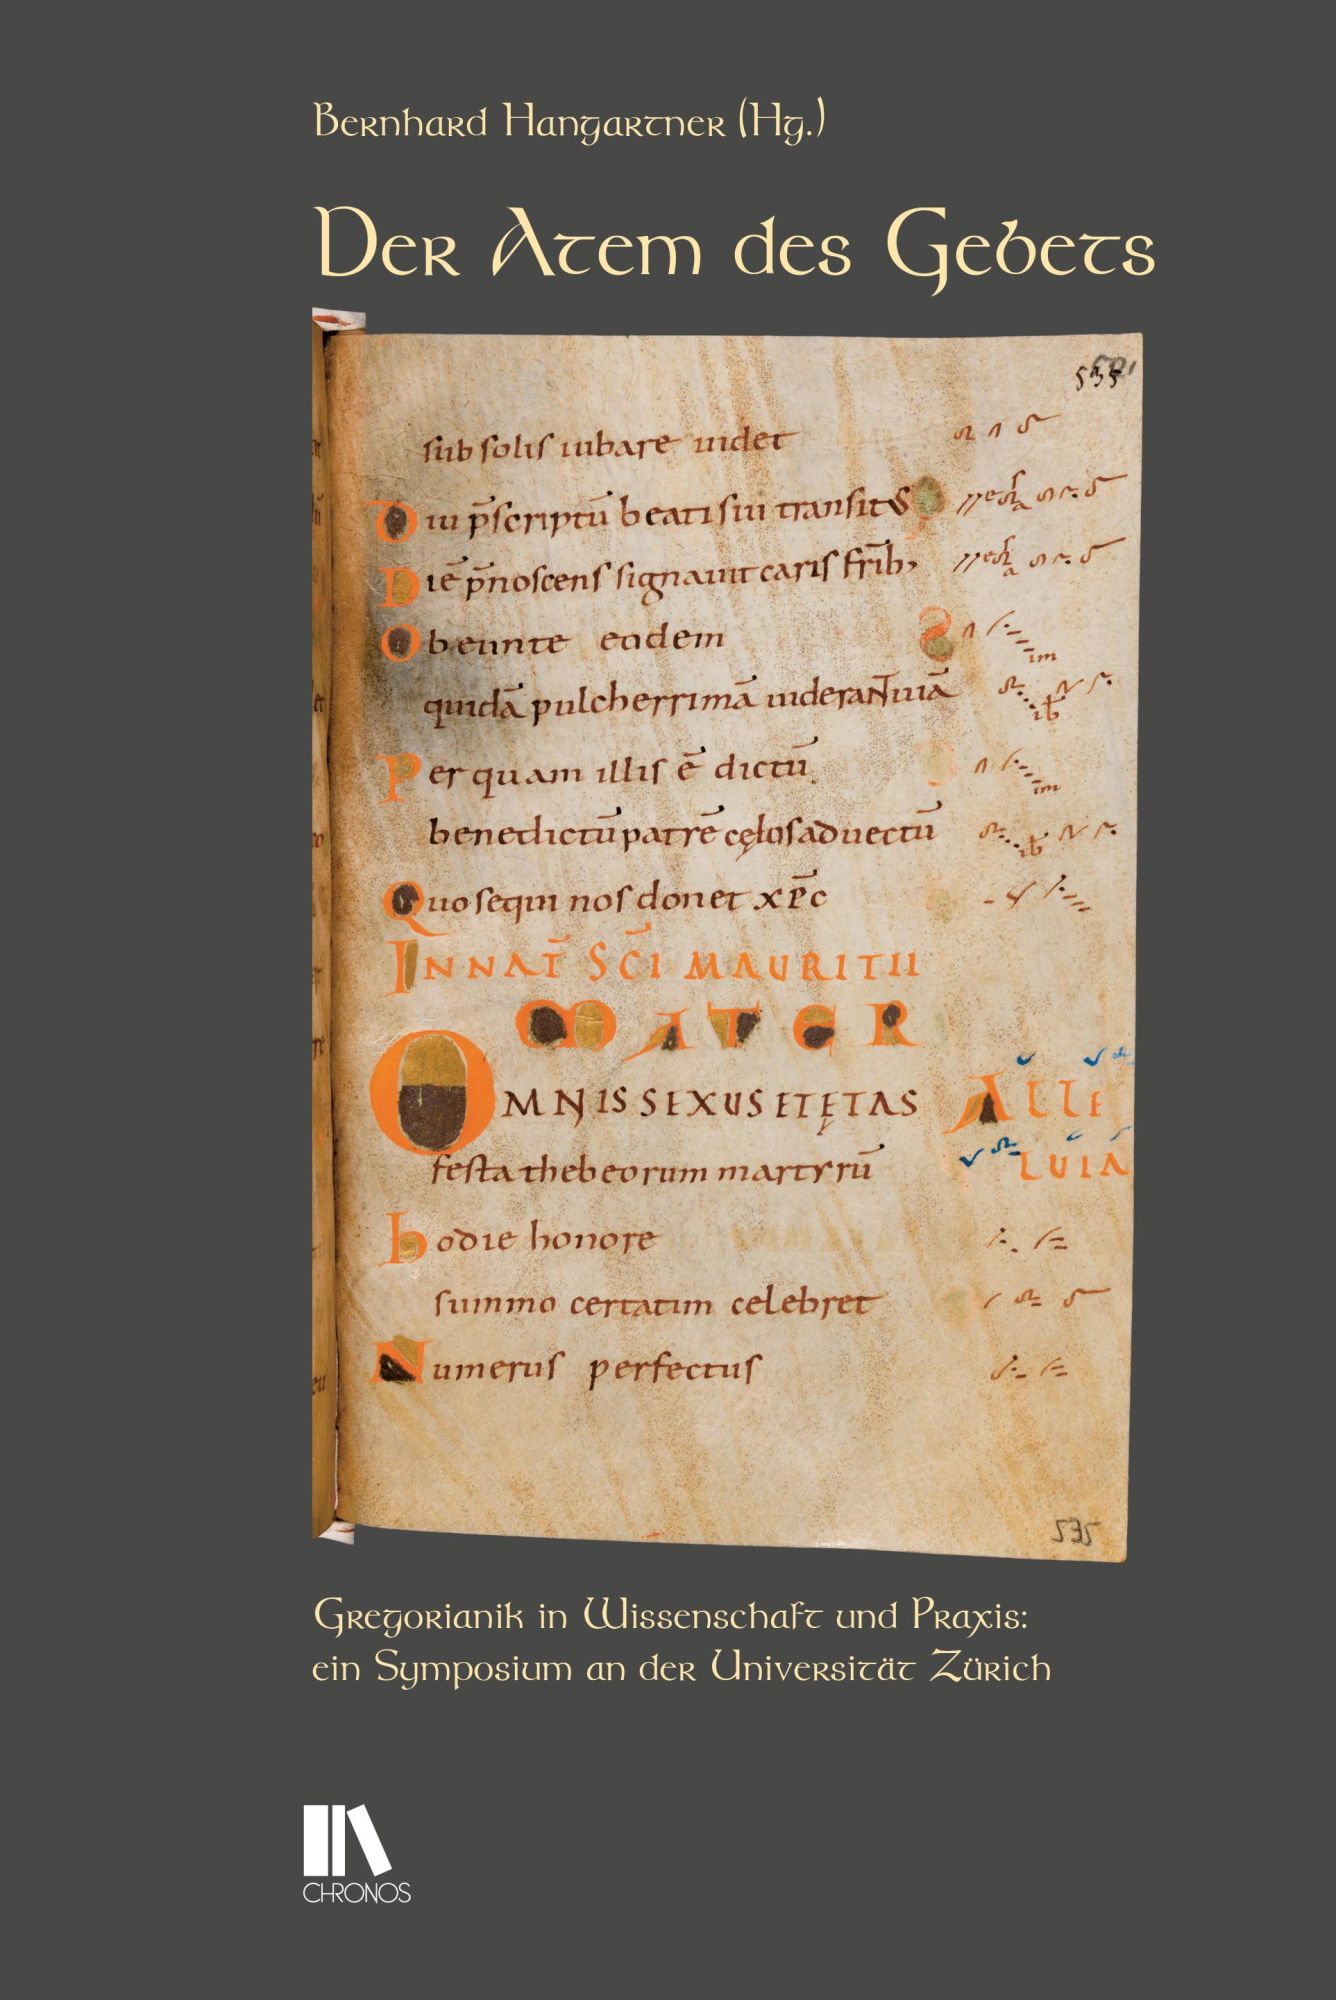 Bernhard Hangartner (Hg.)
Der Atem des Gebets
535
sub solis iubare uidet
Diu p̄scriptū beati sui transitus
Diē p̄noscens signauit caris fr̄ib,
Obeunte eodem
im
quidā pulcherrimā uiderant uiā
ib
Per quam illis ē dictū
im
benedictū patrē cęlos aduectū
ib
Quo sequi nos donet xp̄c
IN NAT̄ SC̄I MAURITII
MATER
OMNIS SEXUS ET ĘTAS ALLE
festa thebeorum martyrū LUIA
hodie honore
summo certatim celebret
Numerus perfectus
535
Gregorianik in Wissenschaft und Praxis:
ein Symposium an der Universität Zürich
CHRONOS